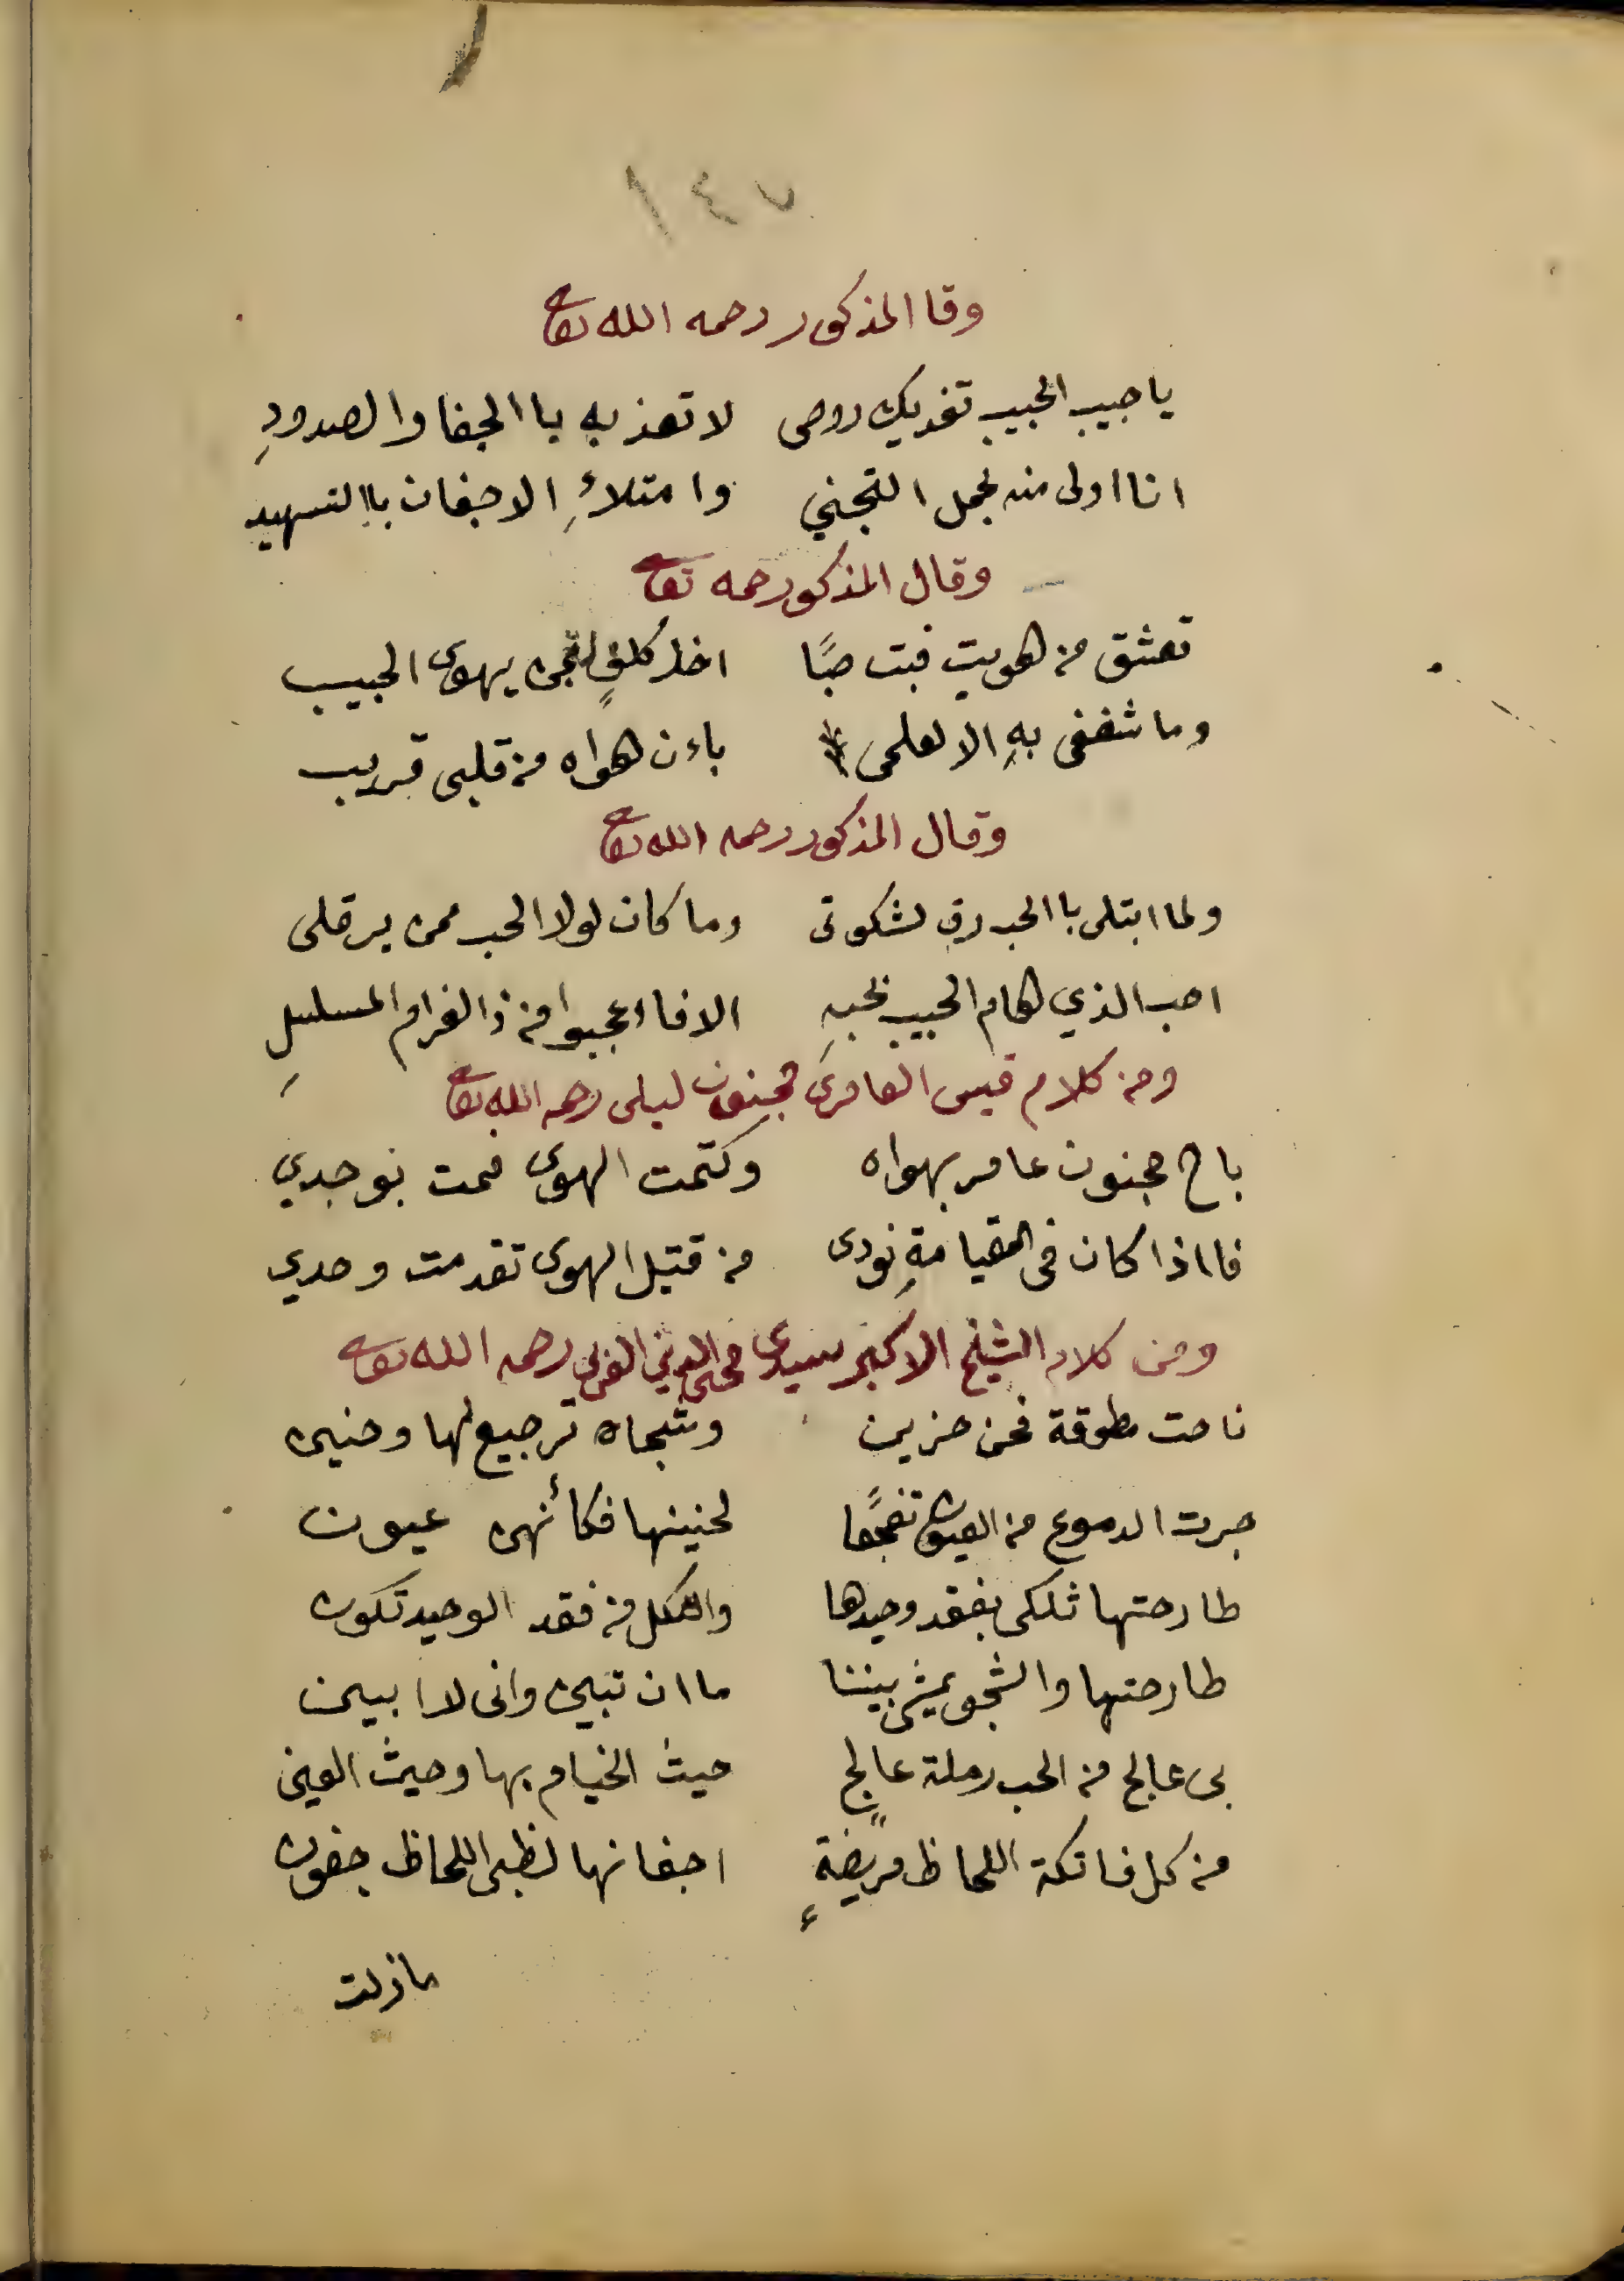 ١٤٧
وقا المذكور رحمه الله تعا
يا حبيب الحبيب تفديك روحى لا تعذبه باالجفا والصدودِ
انا اولى منه لحمل التجني وامتلاءِ الاجفان باالتسهيد
وقال المذكور رحمه تعا
تعشق من هويت فبت صبًا اخا كلفٍ لمن يهوى الحبيب
وما شغفى بهِ الا لعلمى باءن هواه من قلبى قريب
وقال المذكور رحمه الله تعا
ولما ابتلى باالحب رق لشكوتى وما كان لولا الحب ممن يرقلى
احب الذي هام الحبيب بحبهِ الا فاعجبوا من ذا الغرام المسلسلِ
ومن كلام قيس العامرى مجنون ليلى رحمه الله تعا
باح مجنون عامر بهواه وكتمت الهوى فمت بوجدي
فااذا كان فى القيامةِ نودى من قتيل الهوى تقدمت وحدي
ومن كلام الشيخ الاكبر سيدى محى الدين العربى رحمه الله تعا
ناحت مطوقة فحن حزين وشجاه ترجيع لها وحنين
جرت الدموع من العيون تفجعًا لحنينها فكأنهن عيون
طارحتها ثلكى بفقد وحيدها والثكل من فقد الوحيد تكون
طارحتها والشجو يمشى بيننا ما ان تبين وانى لا ابين
بى عالج من الحب رملة عالج حيث الخيام بها وحيث العين
من كل فاتكة اللحاظ مريضةٍ اجفانها لظبى اللحاظ جفون
مازلت